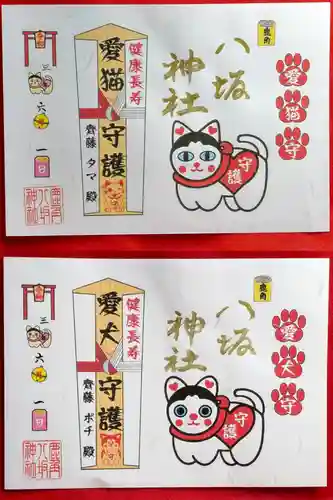 鹿角
八坂
神社
愛
猫
守
健康長寿
愛猫守護
齊藤 タマ 殿
守護
三
六
一
日
鹿角
八坂
神社
愛
犬
守
健康長寿
愛犬守護
齊藤 ポチ 殿
守護
三
六
一
日